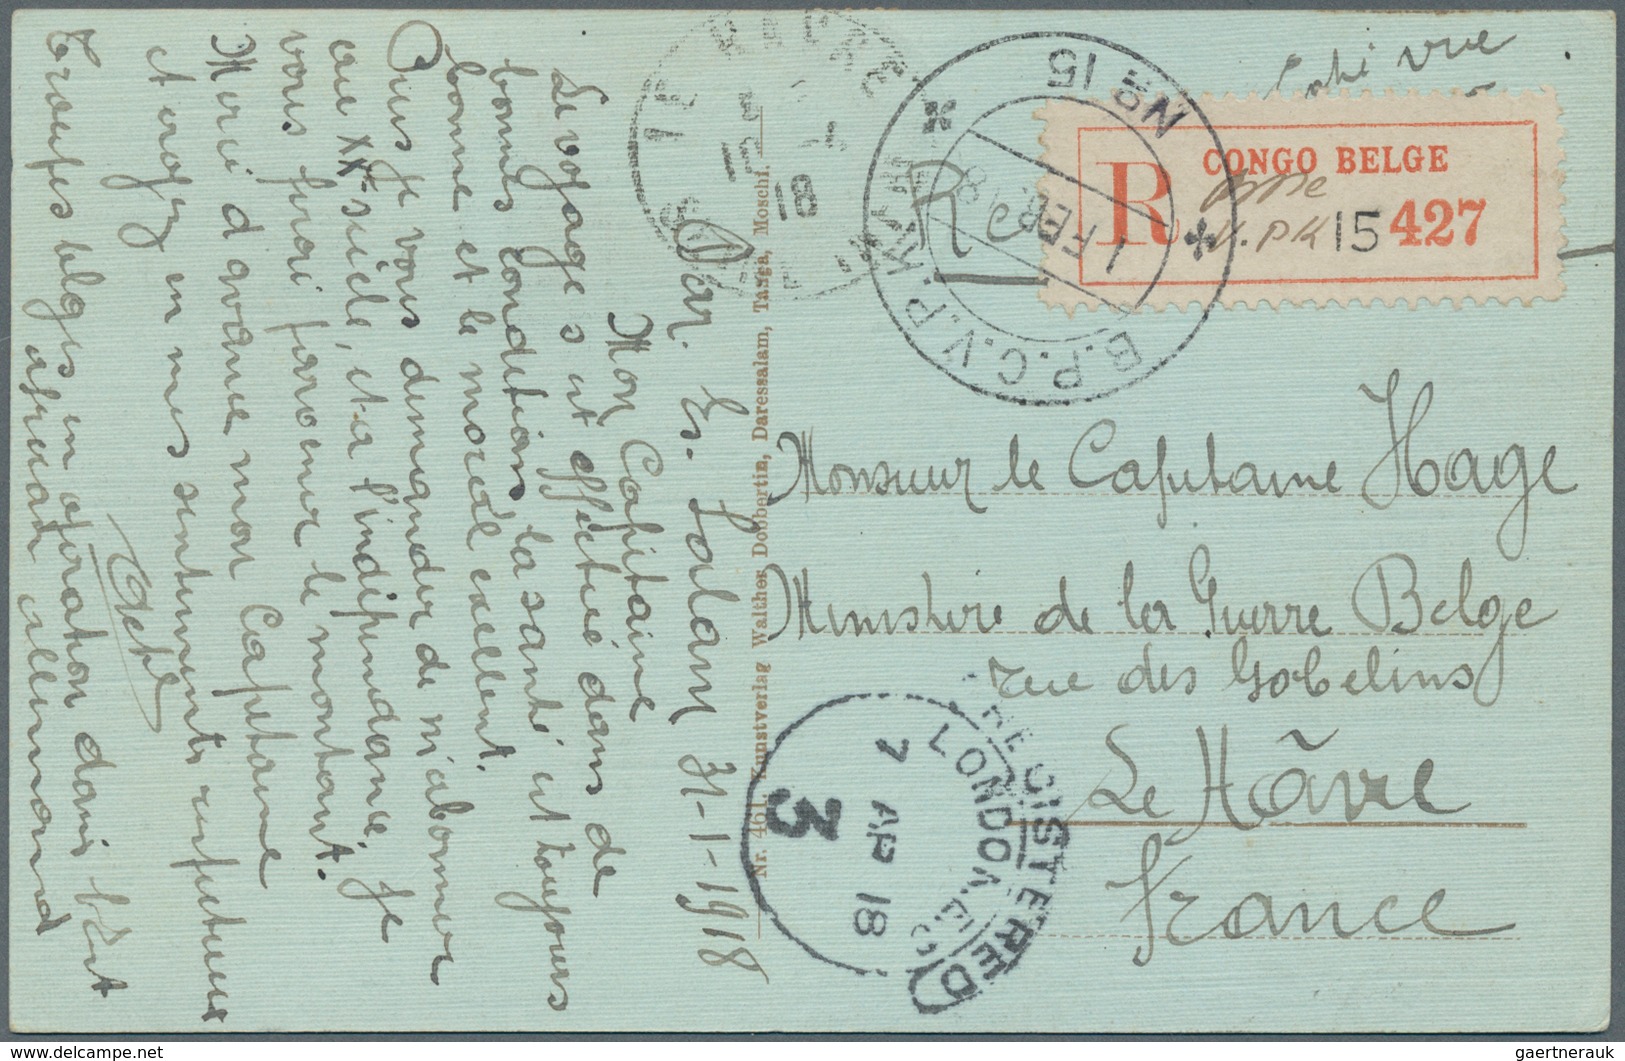 Coté vue
CONGO BELGE
R
V.P.K 15 427
No 15
B.P.C.V.P.K.
1 FEBR 1918
STE ADRESSE
18
Dar. Es. Salam 31-1-1918
Mon Capitaine
Le voyage s'est effectué dans de
bonnes conditions, la santé est toujours
bonne et le moral excellent.
Puis je vous demander de m'abonner
au XXe siècle, et a l'indépendance. Je
vous ferai parvenir le montant.
Merci d'avance mon Capitaine
et croyez en mes sentiments respectueux
Troupes belges en opération dans l'Est
africain allemand
Nr. 461 Kunstverlag Walther Dobbertin, Daressalam, Tanga, Moschi.
Monsieur le Capitaine Hage
Ministère de la Guerre Belge
rue des Gobelins
Le Hâvre
France
REGISTERED
LONDON
7 AP 18
3
gaertnerauk